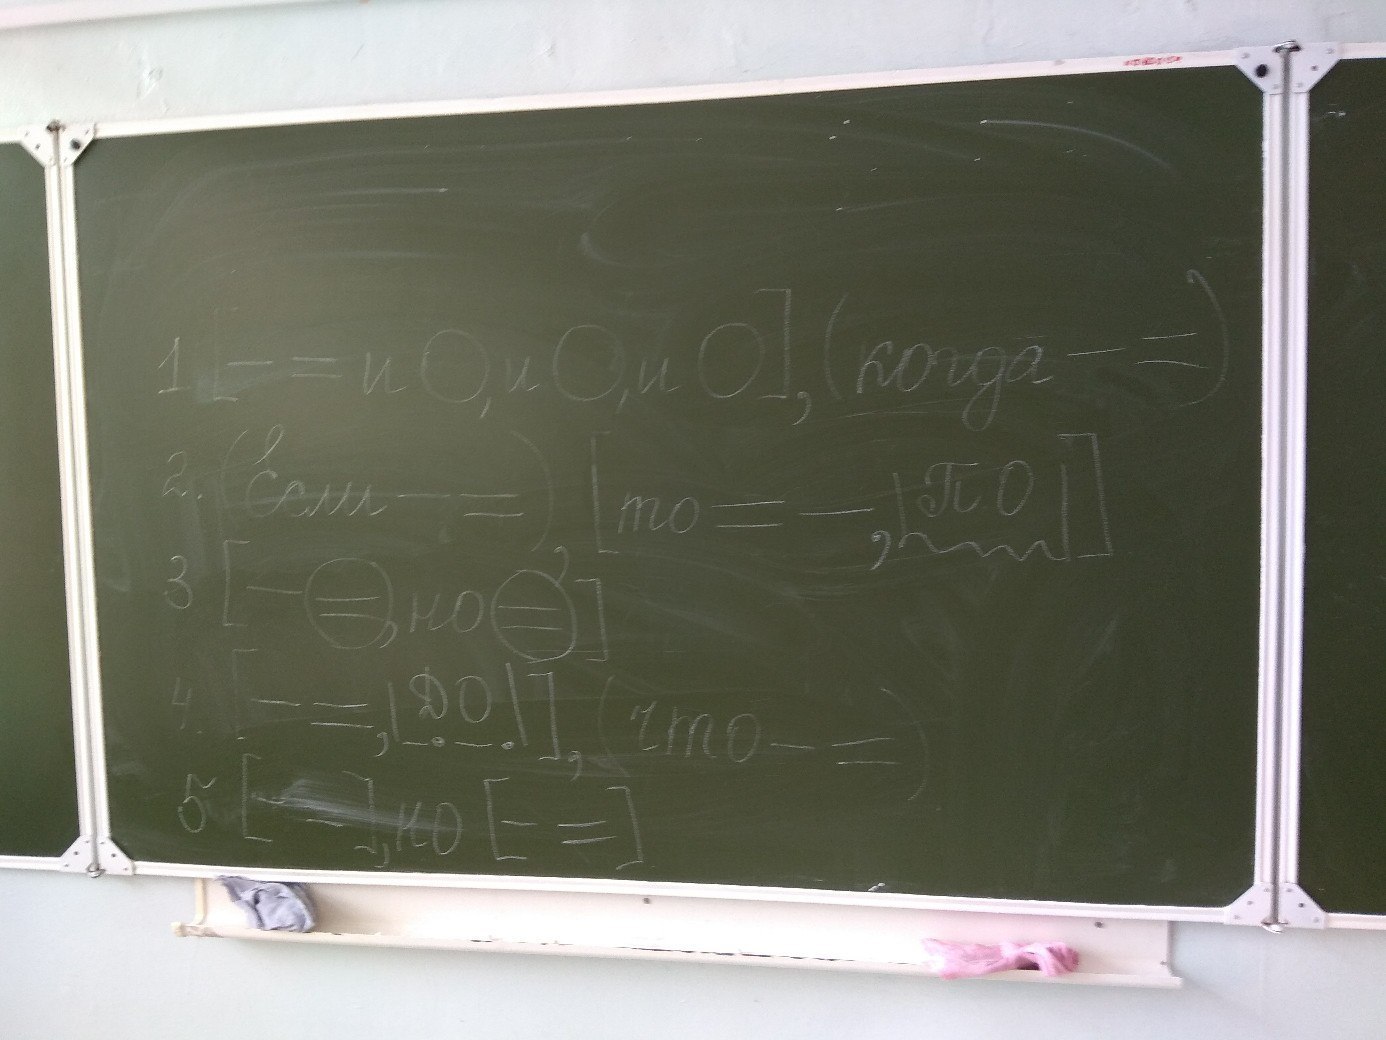 1. [— = и O, и O, и O], (когда — =)
2. (Если — =), [то = —, |ПО|]
3 [— =, но =]
4. [— =, |ДО|], (что — =)
5 [— —], но [— =]